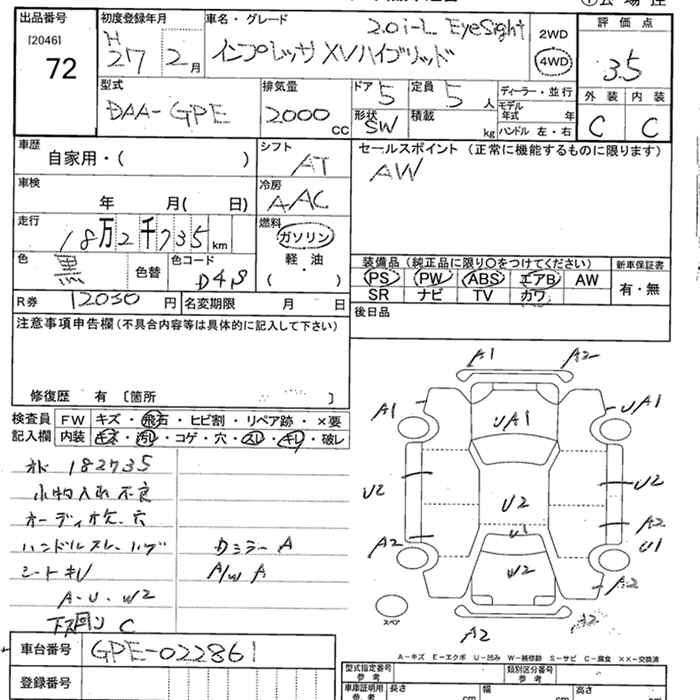 出品番号
[2046]
72
初度登録年月
H
27 2月
車名・グレード
2.0i-L EyeSight
インプレッサ XVハイブリッド
2WD
4WD
評価点
3.5
型式
DAA-GPE
排気量
2000
CC
ドア
5
定員
5人
形状
SW
積載
kg
ディーラー・並行
モデル年式 年
ハンドル 左・右
外装 内装
C C
車歴
自家用・( )
シフト
AT
セールスポイント (正常に機能するものに限ります)
AW
車検
年 月( 日)
冷房
AAC
走行
18万2千735km
燃料
ガソリン
軽・油
( )
色
黒
色替
色コード
D4S
装備品 (純正品に限り○をつけてください)
新車保証書
PS PW ABS エアB AW
SR ナビ TV カワ
有・無
R券 12030円
名変期限 月 日
後日品
注意事項申告欄(不具合内容等は具体的に記入して下さい)
修復歴 有 〔箇所 〕
検査員
記入欄
FW キズ・飛石・ヒビ割・リペア跡・×要
内装 キズ・汚レ・コゲ・穴・スレ・キレ・破レ
182735
小物入れ不良
オーディオ 穴
ハンドルスレ
シートキレ
A・U・W2
下廻り C
Dミラー A
A/W A
A1 A2
A1 UA1 UA1
U2 U2 U2
A2 U1 A2
U1
W2 A2
スペア
A2 A2
A-キズ E-エクボ U-凹み W-補修跡 S-サビ C-腐食 ××-交換済
車台番号
GPE-022861
登録番号
型式指定番号
参考
類別区分番号
参考
車庫証明用
参考
長さ cm
幅 cm
高さ cm